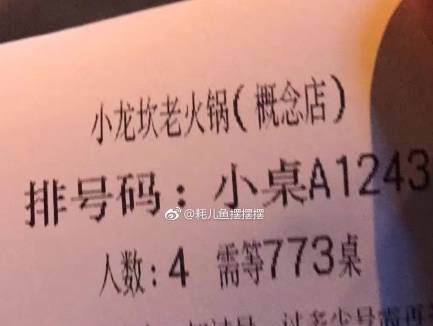 小龙坎老火锅(概念店)
排号码：小桌A1243
@耗儿鱼摆摆摆
人数:4 需等773桌